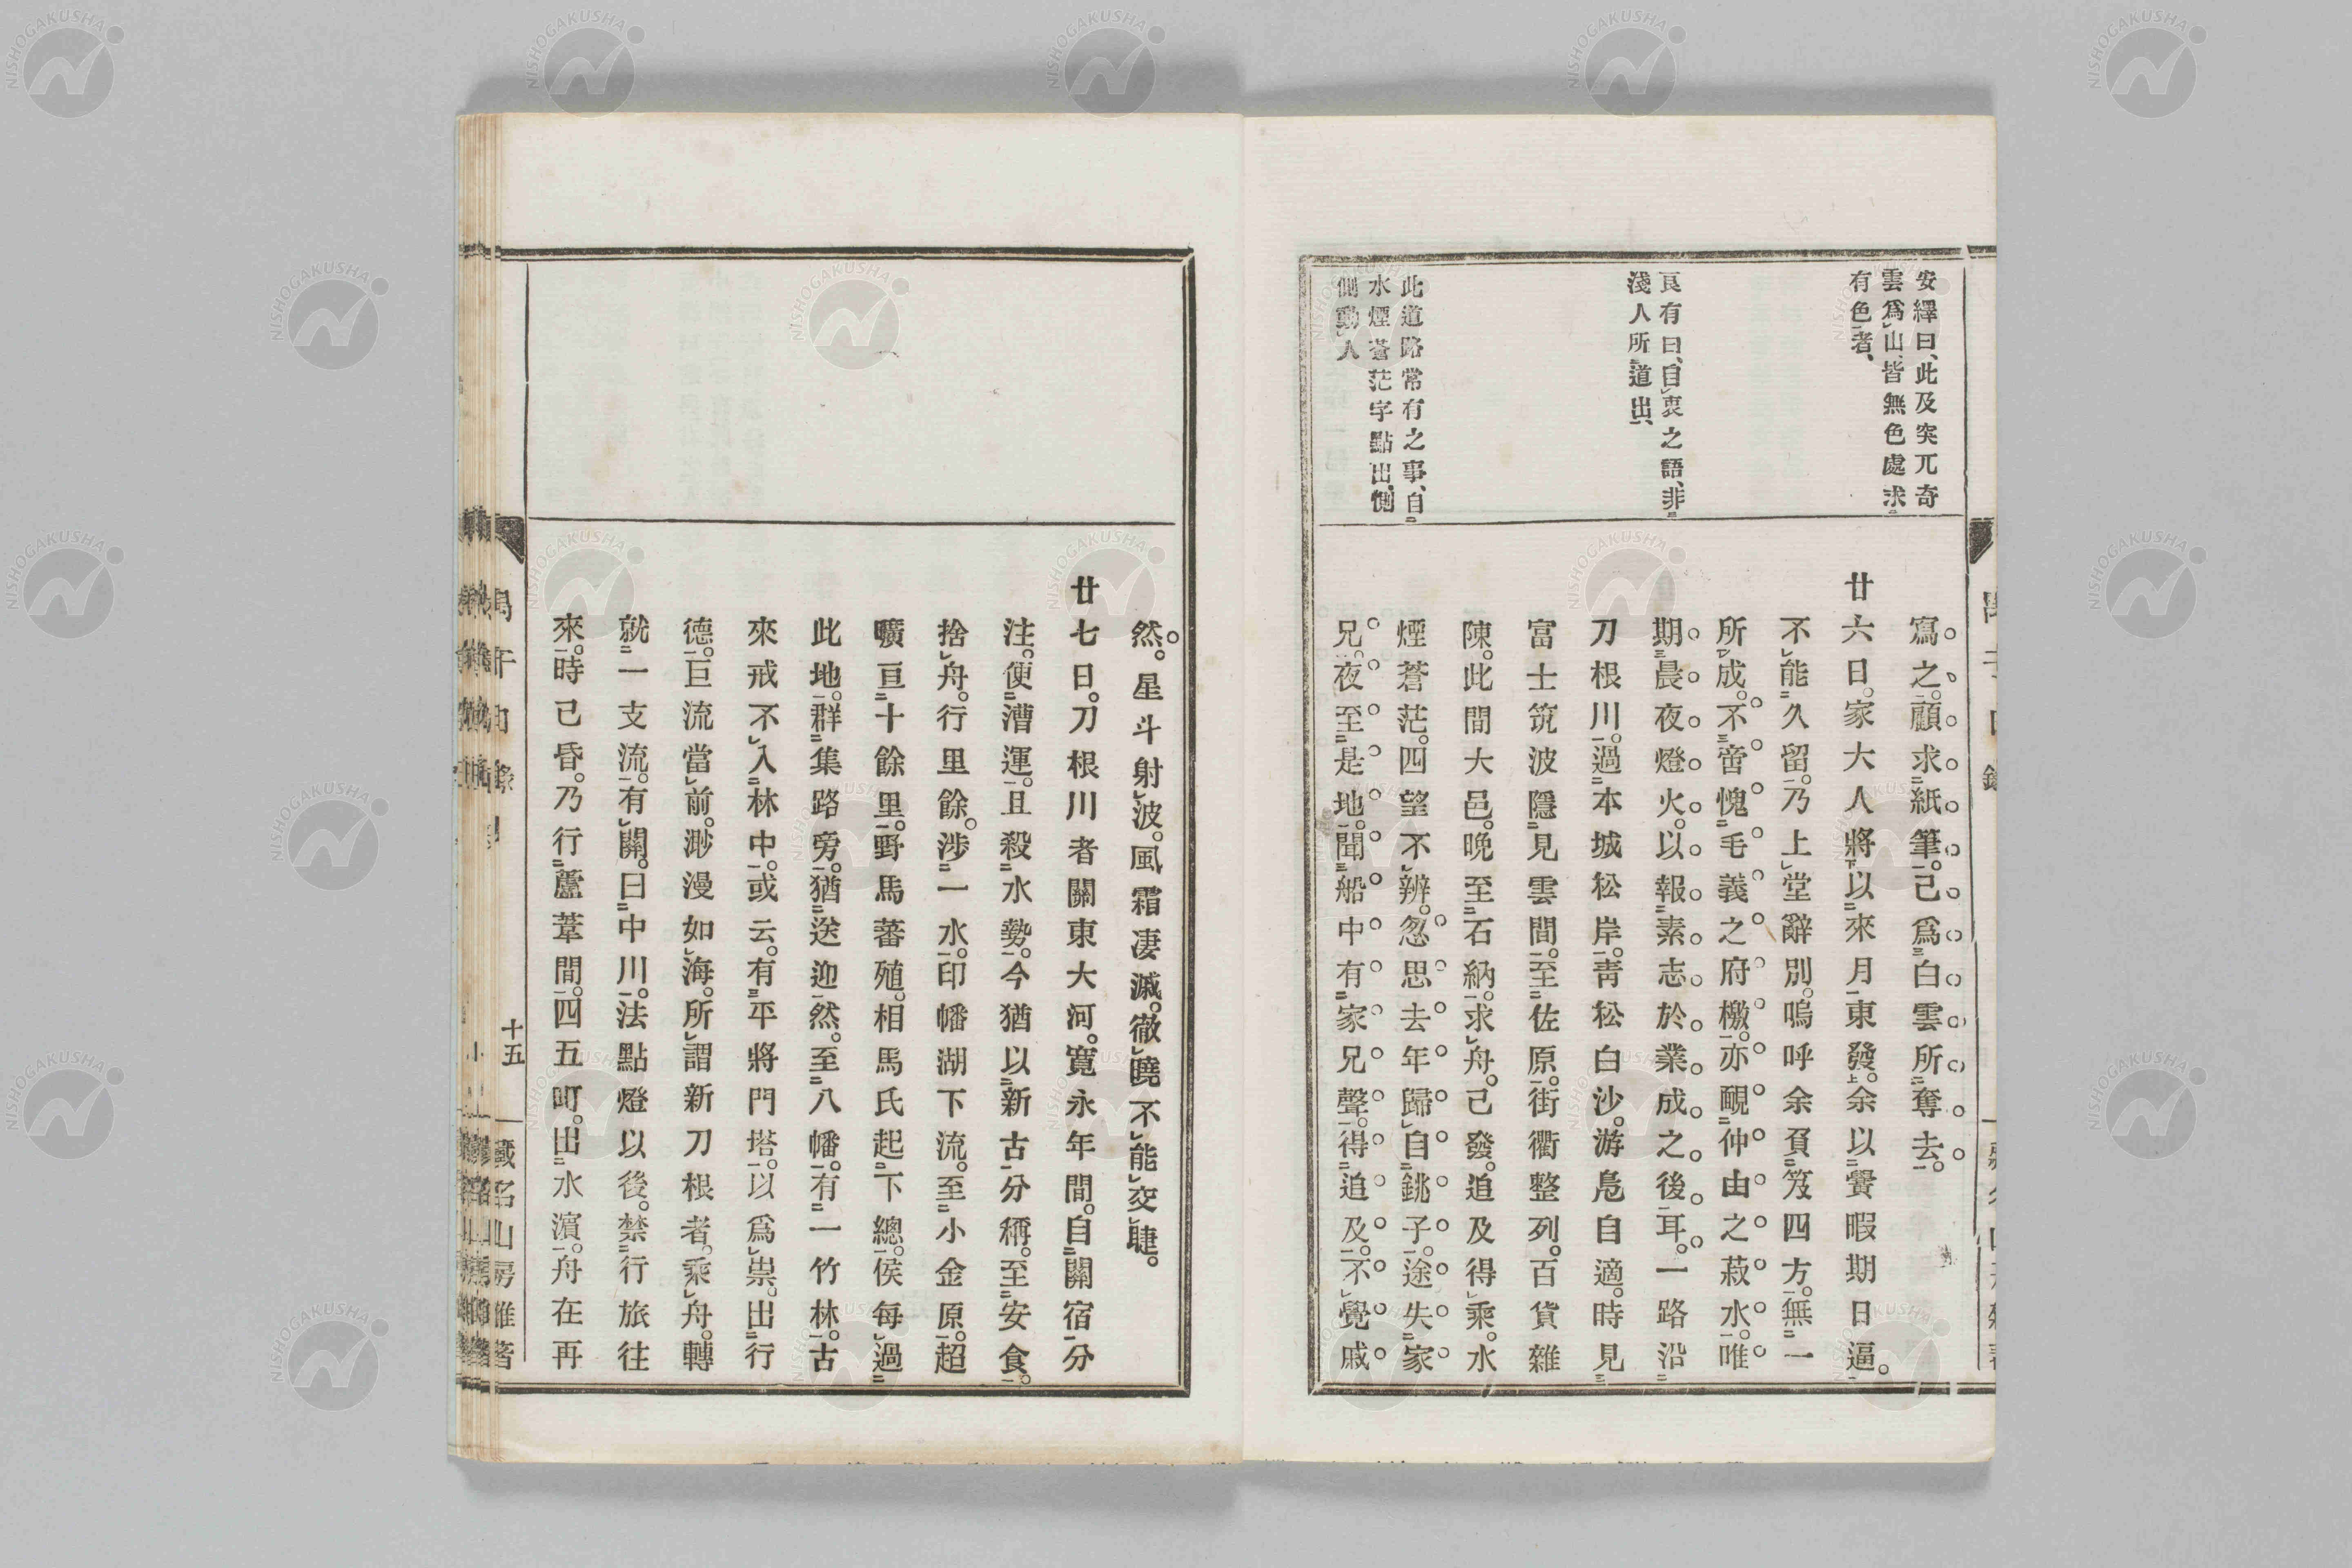 安繹曰、此及突兀奇
雲爲山、皆無色處求
有色者、
良有曰、自衷之語、非
淺人所道出、
此道路常有之事、自
水煙蒼茫字點出、惻
惻動人
寫之。顧求紙筆。已爲白雲所奪去。
廿六日。家大人將以來月東發。余以黌暇期日逼。
不能久留。乃上堂辭別。嗚呼余負笈四方。無一
所成。不啻愧毛義之府檄。亦靦仲由之菽水。唯
期晨夜燈火。以報素志於業成之後耳。一路沿
刀根川。過本城松岸。靑松白沙。游鳧自適。時見
富士筑波隱見雲間。至佐原。街衢整列。百貨雜
陳。此間大邑。晚至石納。求舟。已發。追及得乘。水
煙蒼茫。四望不辨。忽思去年歸自銚子。途失家
兄。夜至是地。聞船中有家兄聲。得追及。不覺戚
然。星斗射波。風霜凄瀐。徹曉不能交睫。
廿七日。刀根川者關東大河。寬永年間。自關宿分
注。便漕運。且殺水勢。今猶以新古分稱。至安食。
捨舟。行里餘。涉一水。印幡湖下流。至小金原。超
曠亘十餘里。野馬蕃殖。相馬氏起下總。侯每過
此地。群集路旁。猶送迎然。至八幡。有一竹林。古
來戒不入林中。或云。有平將門塔。以爲祟。出行
德。巨流當前。渺漫如海。所謂新刀根者。乘舟。轉
就一支流。有關。曰中川。法點燈以後。禁行旅往
來。時已昏。乃行蘆葦間。四五町。出水濱。舟在再
十五
藏名山房雜著